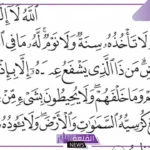 اللَّهُ لَا إِلَـ
لَا تَأْخُذُهُ سِنَةٌ وَلَا نَوْمٌ لَّهُ مَا فِي ا
ضِ مَن ذَا الَّذِي يَشْفَعُ عِندَهُ إِلَّا بِإِذْ
م وَمَا خَلْفَهُمْ وَلَا يُحِيطُونَ بِشَيْءٍ مِّنْ
كُرْسِيُّهُ السَّمَوَاتِ وَالْأَرْضَ وَلَا يَئُودُهُ
القلعة
NEWS